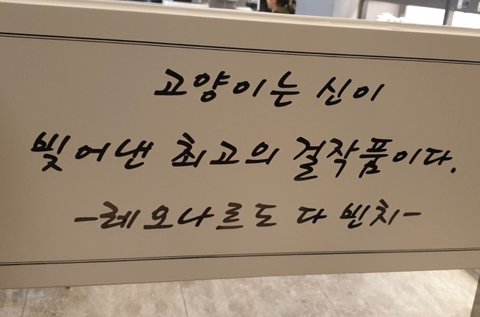 고양이는 신이
빚어낸 최고의 걸작품이다.
-레오나르도 다 빈치-